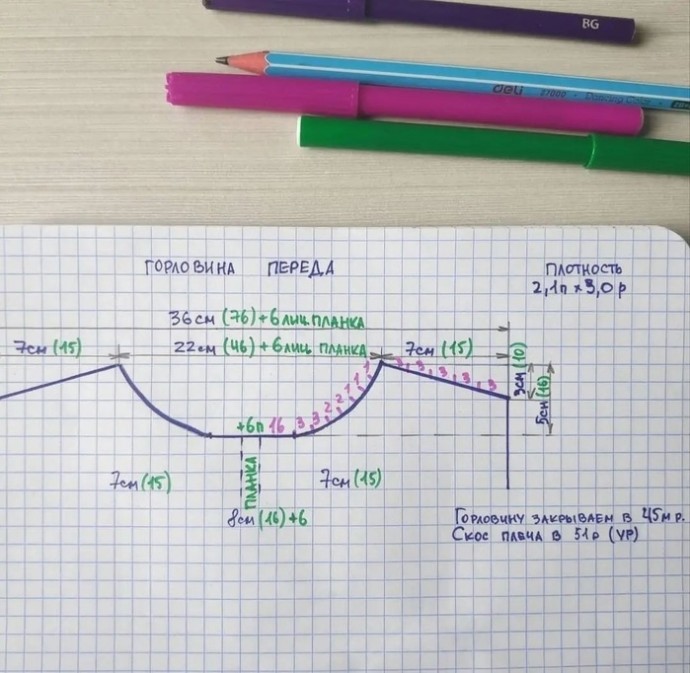 BG
deli
ГОРЛОВИНА ПЕРЕДА
ПЛОТНОСТЬ
2,1п × 3,0 р
36см (76) + 6 лиц ПЛАНКА
7см (15)
22см (46) + 6 лиц ПЛАНКА
7см (15)
3см (10)
5см (16)
+6п 16 3,3,2,2,1,1,1
3,3,3,3,3
7см (15)
ПЛАНКА
7см (15)
8см (16) + 6
ГОРЛОВИНУ ЗАКРЫВАЕМ В 45м р.
СКОС ПЛЕЧА В 51р (УР)